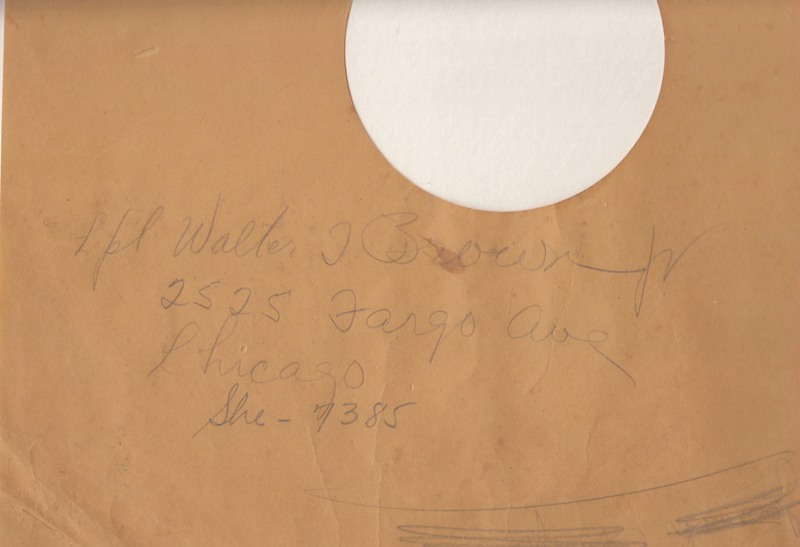 Cpl Walter J Brown Jr
2525 Fargo Ave
Chicago
She - 7385